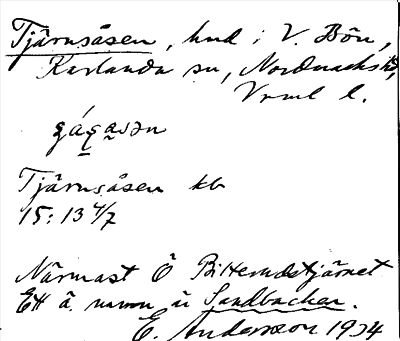 Tjärnsåsen, hmd i V. Bön,
Karlanda sn, Nordmarks hd,
Vrml l.
Tjärnsåsen kb
15:13 4/7
Närmast Ö Bitterudstjärnet
Ett a. namn är Sandbacken.
E. Andersson 1934